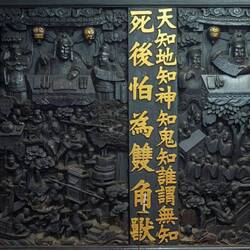 天知地知神知鬼知誰謂無知
死後怕為雙角獸